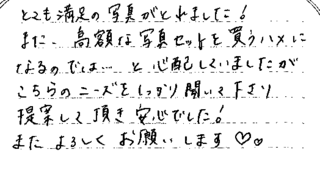 とても満足の写真がとれました!
また、高額な写真セットを買うハメに
なるのでは… と心配していましたが
こちらのニーズをしっかり聞いて下さり
提案して頂き安心でした!
また よろしく お願いします♡♡